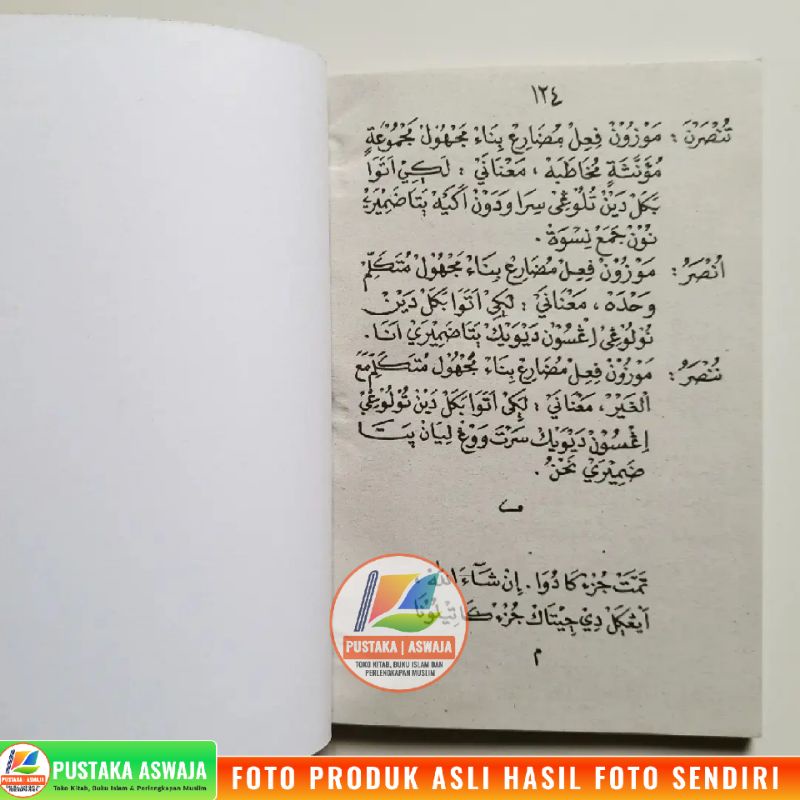 ١٢٤
تُنْصَرْنَ : مَوْزُوْنْ فِعِلْ مُضَارِعْ بِنَاءْ مَجْهُوْلْ مَجْمُوْعَةٍ
مُؤَنَّثَةٍ مُخَاطَبَهْ ، مَعْنَانَيْ : لَكِيْ اَتَوَا
بَكَلْ دَيْنْ تُلُوْڠِيْ سِرَا وَدَوْنْ اَكَيَهْ پَتَا ضَمِيْرَيْ
نُوْنْ جَمَعْ نِسْوَةْ .
اُنْصَرُ : مَوْزُوْنْ فِعِلْ مُضَارِعْ بِنَاءْ مَجْهُوْلْ مُتَكَلِّمْ
وَحْدَهْ ، مَعْنَانَيْ : لَكِيْ اَتَوَا بَكَلْ دَيْنْ
تُوْلُوْڠِيْ اِڠْسُوْنْ دَيْوَيْكْ پَتَا ضَمِيْرَيْ اَنَا .
نُنْصَرُ : مَوْزُوْنْ فِعِلْ مُضَارِعْ بِنَاءْ مَجْهُوْلْ مُتَكَلِّمْ مَعَ
الْغَيْرْ ، مَعْنَانَيْ : لَكِيْ اَتَوَا بَكَلْ دَيْنْ تُوْلُوْڠِيْ
اِڠْسُوْنْ دَيْوَيْكْ سَرْتَ وَوْڠْ لِيَانْ پَتَا
ضَمِيْرَيْ نَحْنُ .
تَمَّتْ جُزْءْ كَادُوَا . اِنْ شَآءَ اللّٰهْ ،
اَيْڠْكَلْ دِيْ چَيْتَاكْ جُزْءْ كَاتِيْلُوْنَا
م
PUSTAKA | ASWAJA
TOKO KITAB, BUKU ISLAM DAN
PERLENGKAPAN MUSLIM
PUSTAKA ASWAJA
Toko Kitab, Buku Islam & Perlengkapan Muslim
FOTO PRODUK ASLI HASIL FOTO SENDIRI